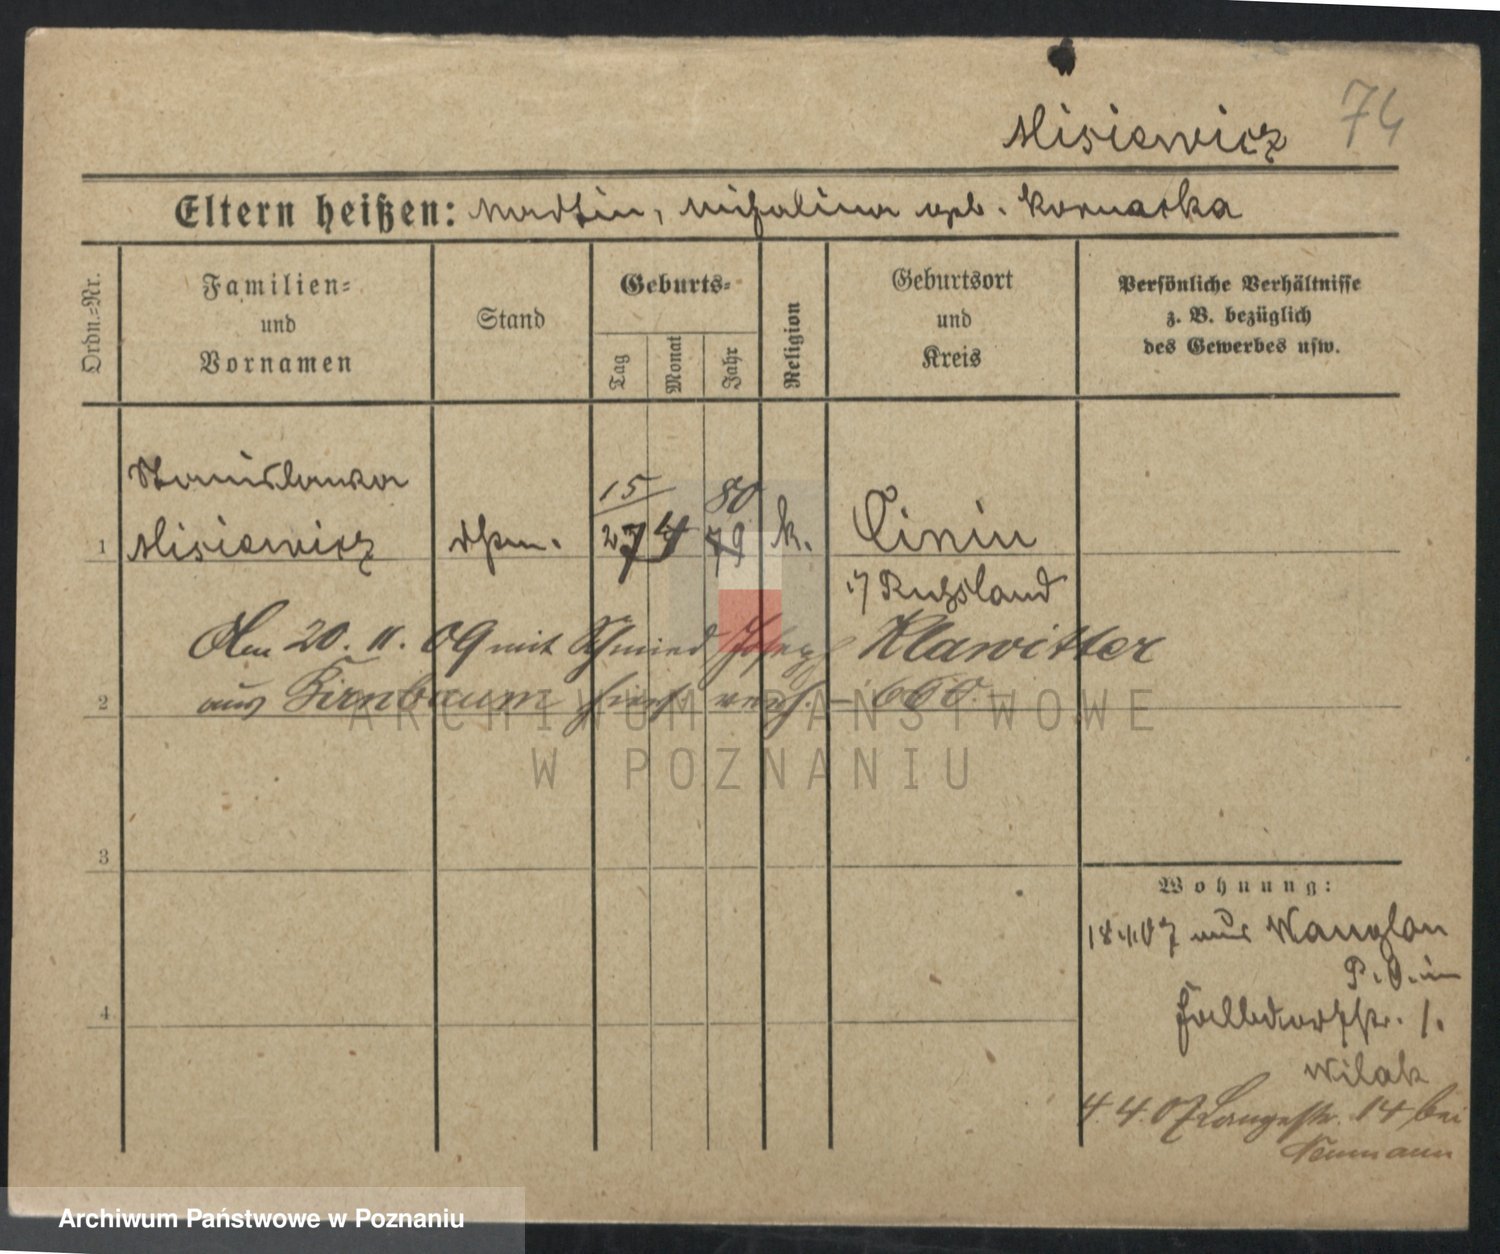 Misiewicz 74
Eltern heißen: Martin, Michalina geb. Kornacka
Ordn.-Nr.
Familien-
und
Vornamen
Stand
Geburts-
Tag
Monat
Jahr
Religion
Geburtsort
und
Kreis
Persönliche Verhältnisse
z. B. bezüglich
des Gewerbes usw.
Stanislawa
15 80
1 Misiewicz 27 4 79 k. Cinin
Rußland
Am 20. 11. 09 mit Schmied Joseph Klawitter
2 aus Birnbaum hier verh. - 660.
3
4
Wohnung:
18 07 aus
P. O. in
1.
Wilak
4. 4. 07 Langestr. 14 bei
Neumann
ARCHIWUM PAŃSTWOWE
W POZNANIU
Archiwum Państwowe w Poznaniu